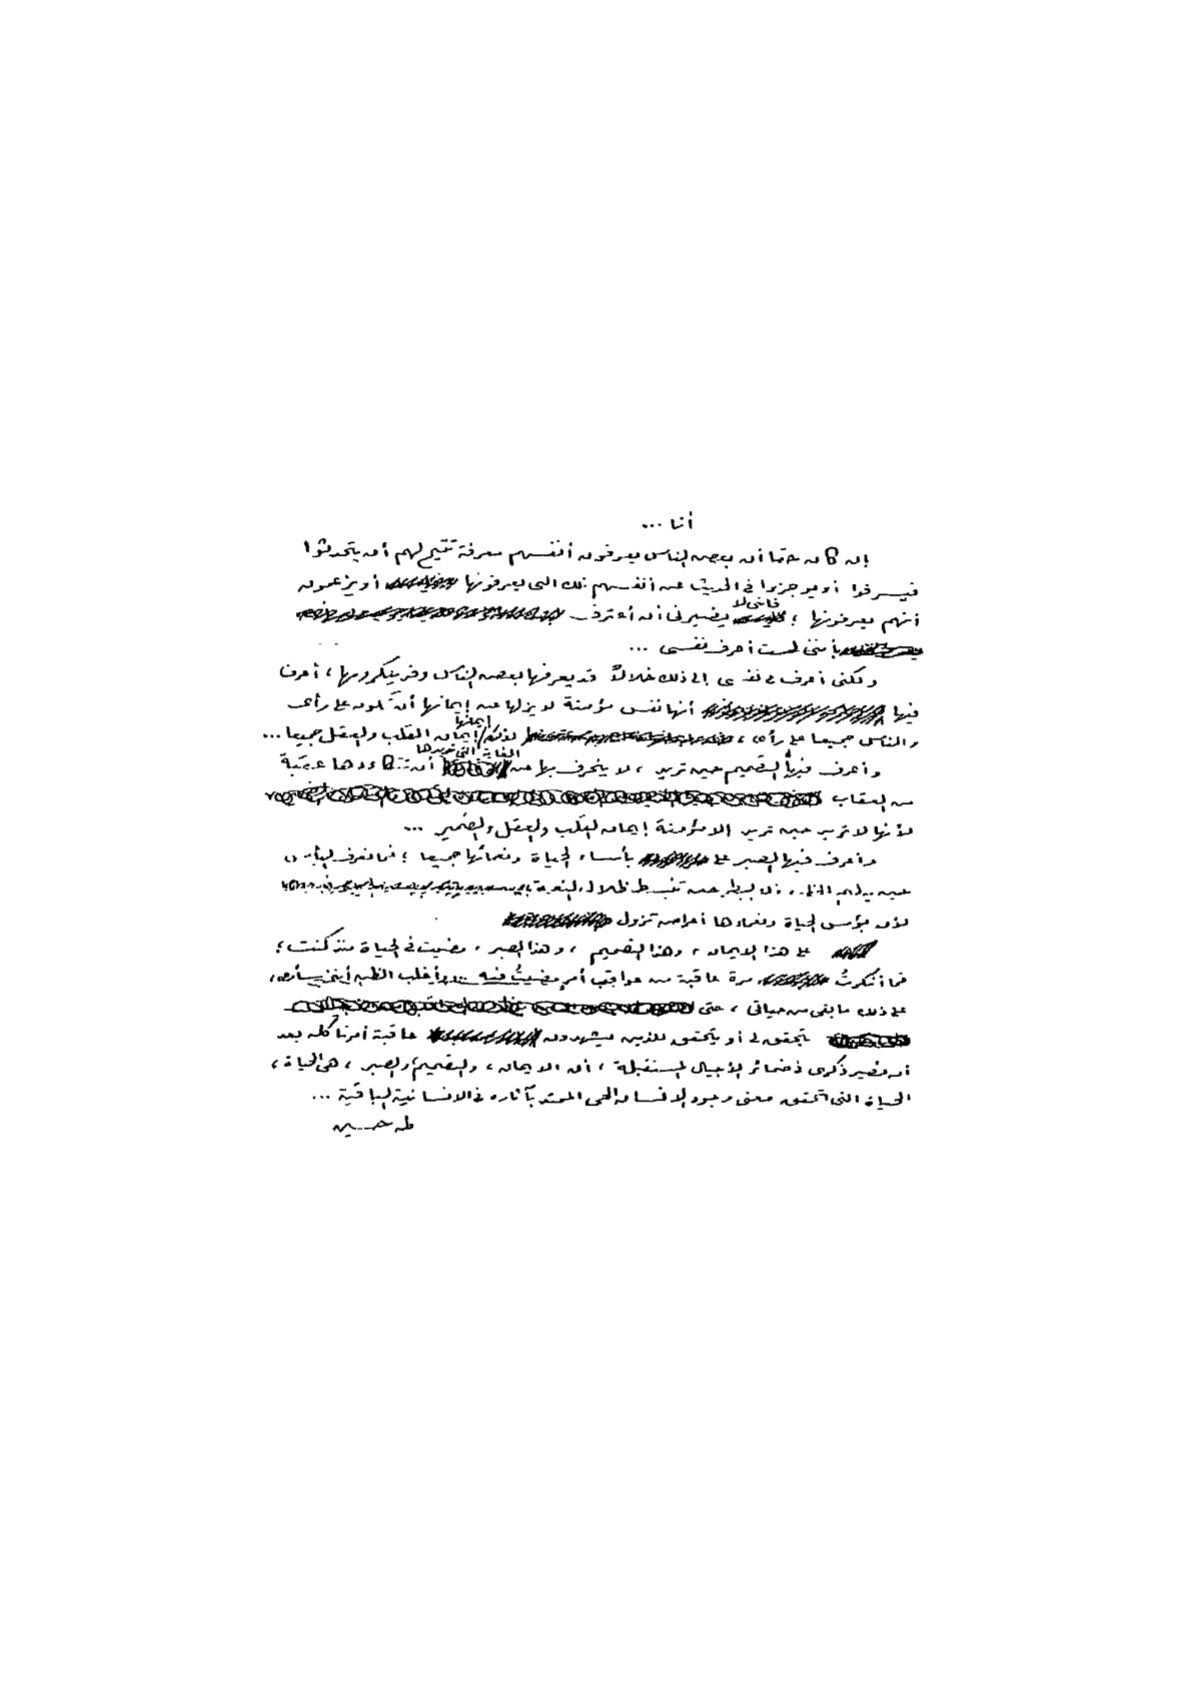 أنا ...
إن كان حقا أن بعض الناس يعرفون أنفسهم معرفة تتيح لهم أن يتحدثوا
فيسرفوا أو يوجزوا في الحديث عن أنفسهم تلك التى يعرفونها أو يزعمون
أنهم يعرفونها ؛ فإنى لا يضيرنى أن أعترف
بأننى لست أعرف نفسى ...
ولكنى أعرف فى نفسى إلى ذلك خلالاً قد يعرفها بعض الناس وقد ينكرونها ، أعرف
فيها أنها نفس مؤمنة لا يزلها عن إيمانها أن تكون على رأى
والناس جميعا على رأى ، لأن إيمانها إيمان القلب والعقل جميعا ...
وأعرف فيها التصميم حين تريد ، لا ينحرف بها عن الغاية التى تريدها أن تتكاءدها عقبة
من العقاب
لأنها لا تريد حين تريد الا مؤمنة إيمان القلب والعقل والضمير ...
وأعرف فيها الصبر على بأساء الحياة ونعمائها جميعا ؛ فما تعرف اليأس
حين ولا البطر حين تنبسط ظلال النعمة
لأن بؤس الحياة ونعماءها أعراض تزول
على هذا الايمان ، وهذا التصميم ، وهذا الصبر ، مضيت فى الحياة منذ كنت ؛
فما أنكرتُ مرة عاقبة من عواقب أمر مضيتُ فيه وأغلب الظن أننى سأمضى
على ذلك ما بقى من حياتى ، حتى
يتحقق لى أو يتحقق للذين يشهدون عاقبة أمرنا كله بعد
أن تصير ذكرى فى ضمائر الأجيال المستقبلة ، أن الايمان ، والتصميم ، والصبر ، هى الحياة ،
الحياة التى تحقق معنى وجود الانسان الحى الممتد بآثاره فى الانسانية الباقية ...
طه حسين